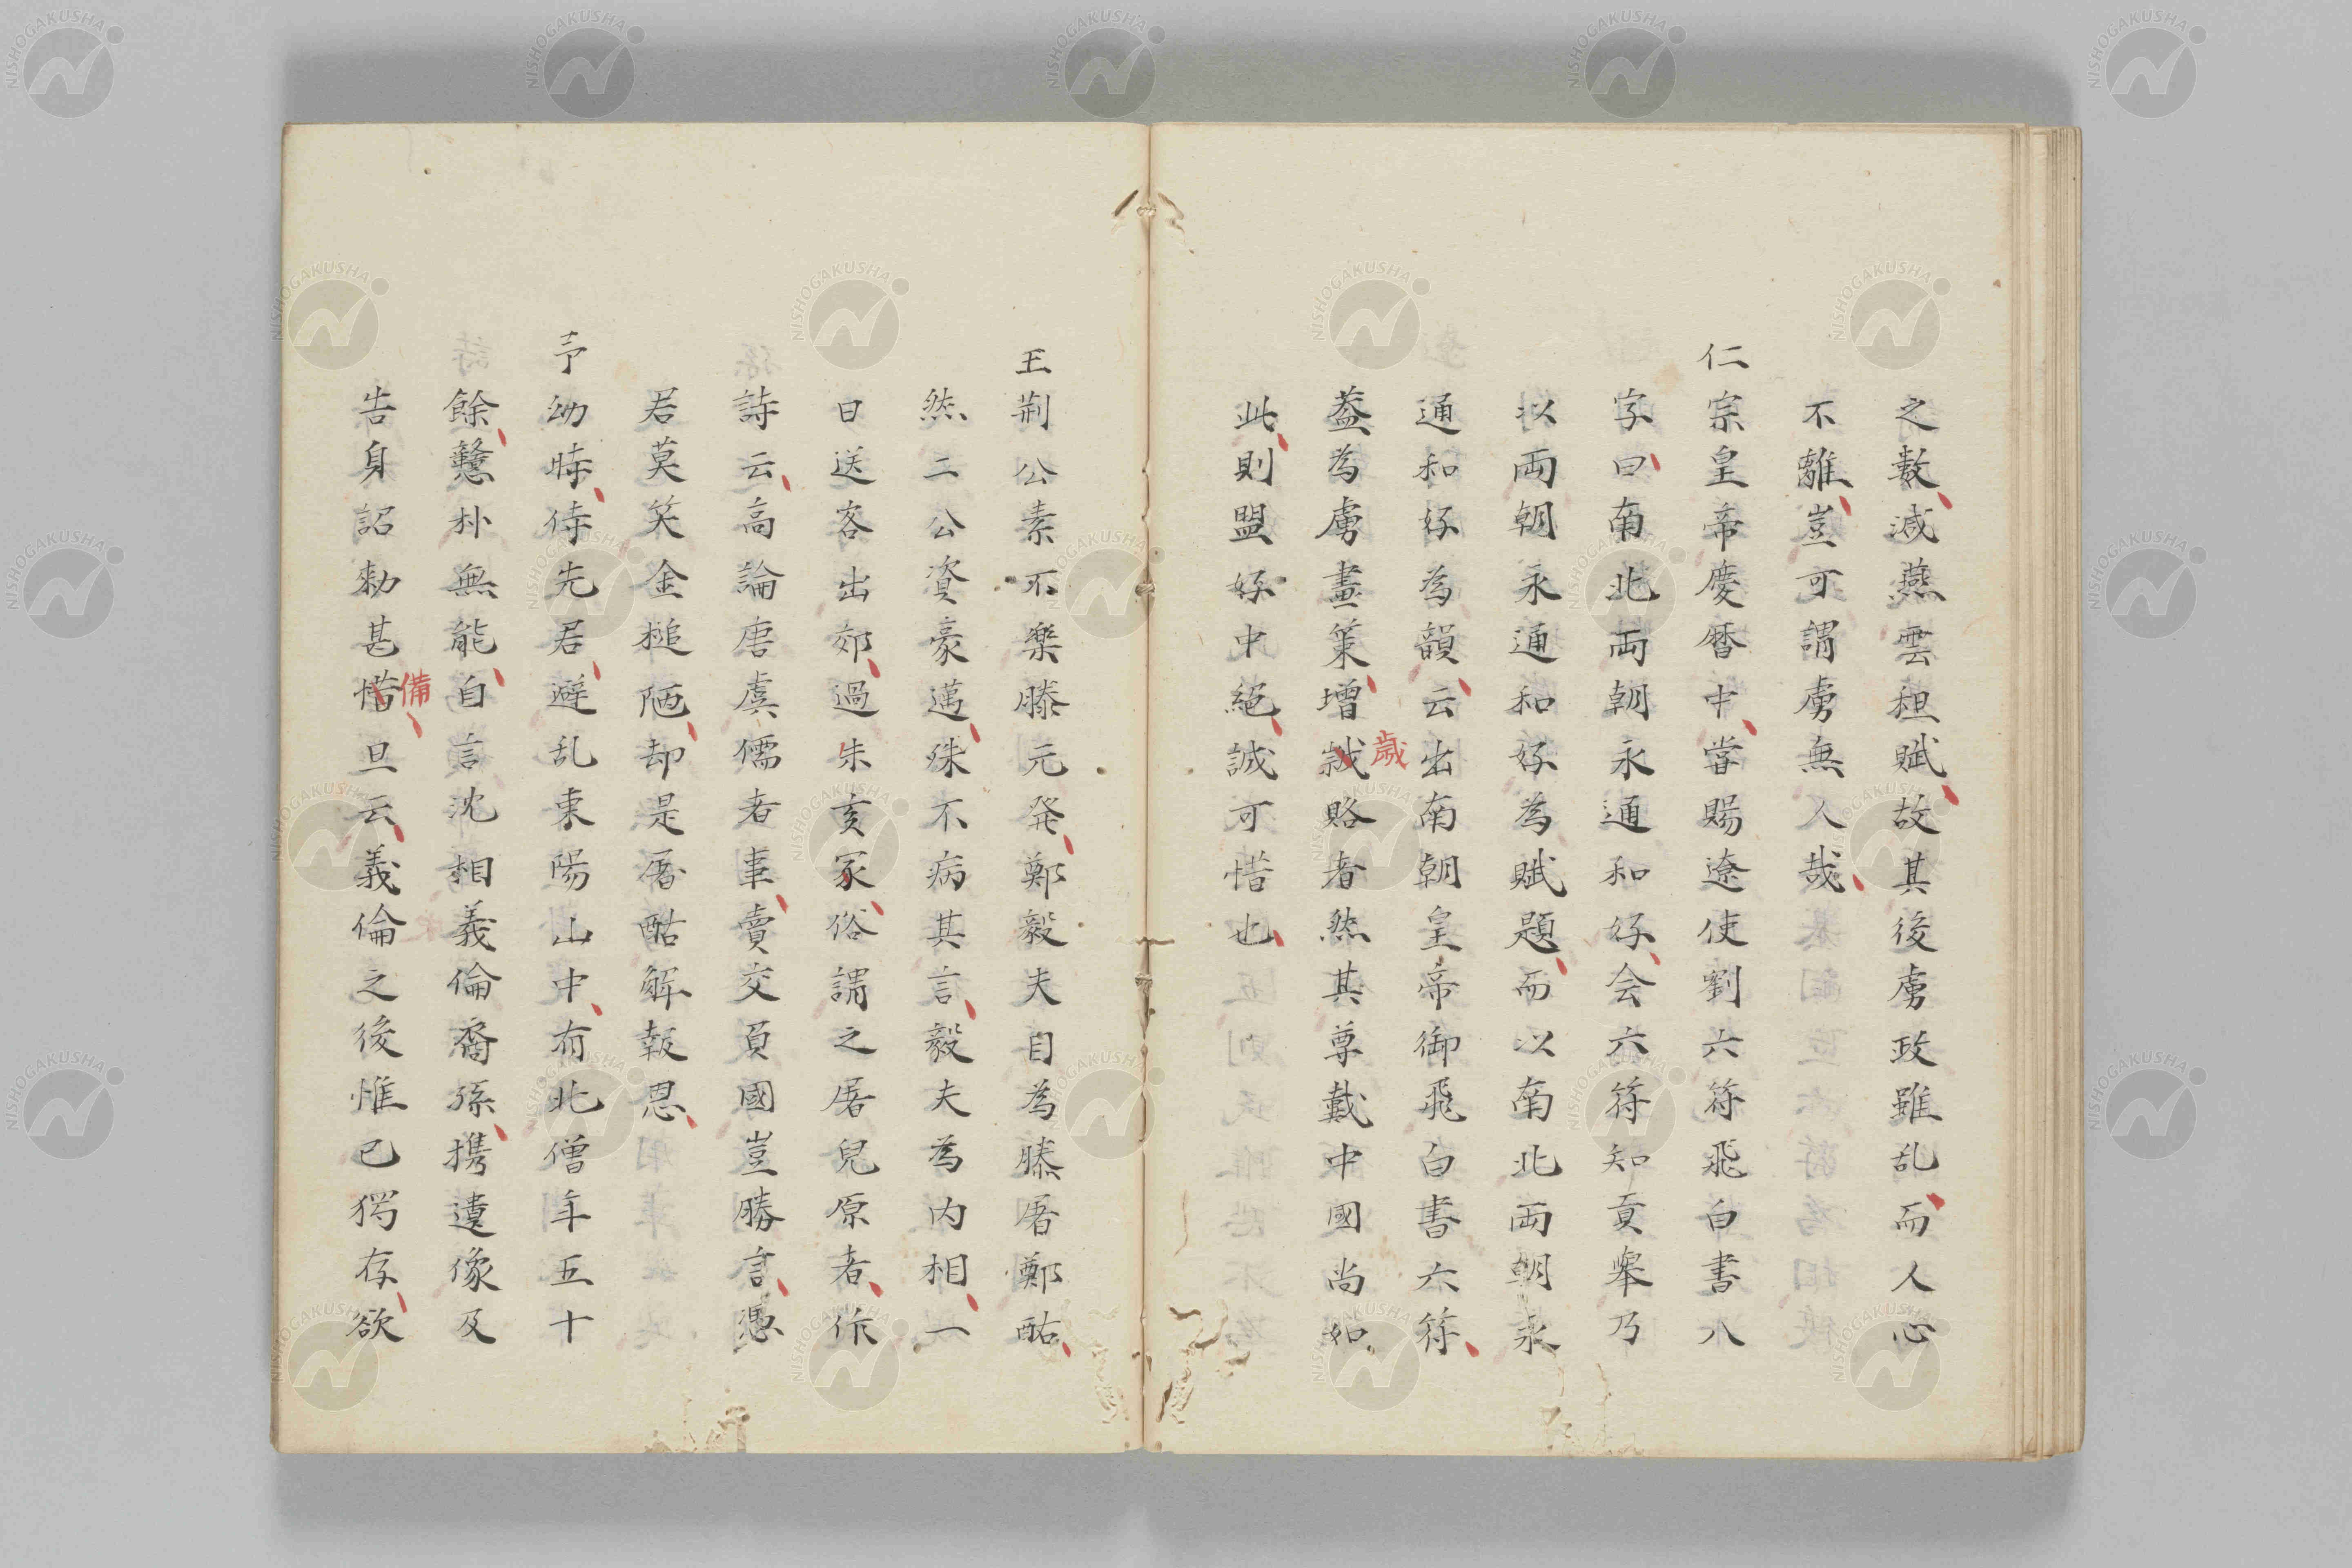 之数减燕雲租賦故其後虜政雖乱而人心
不離豈可謂虜無人哉
仁宗皇帝慶暦中甞賜遼使劉六符飛白書八
字曰南北両朝永通和好会六符知貢挙乃
以両朝永通和好為賦題而以南北両朝永
通和好為韻云出南朝皇帝御飛白書六符
盖為虜畫策增誠賂者然其尊戴中國尚如
歳
此則盟好中絕誠可惜也
王荆公素不楽滕元発鄭毅夫目為滕屠鄭酤
然二公資豪邁殊不病其言毅夫為内相一
日送客出郊過朱亥冢俗謂之屠兒原者作
詩云高論唐虞儒者事賣交負國豈勝言憑
君莫笑金槌陋却是屠酤解報恩
予幼時侍先君避乱東陽山中有北僧年五十
餘戇朴無能自言沈相義倫裔孫携遺像及
告身詔勅甚惜且云義倫之後惟已獨存欲
備
NISHOGAKUSHA